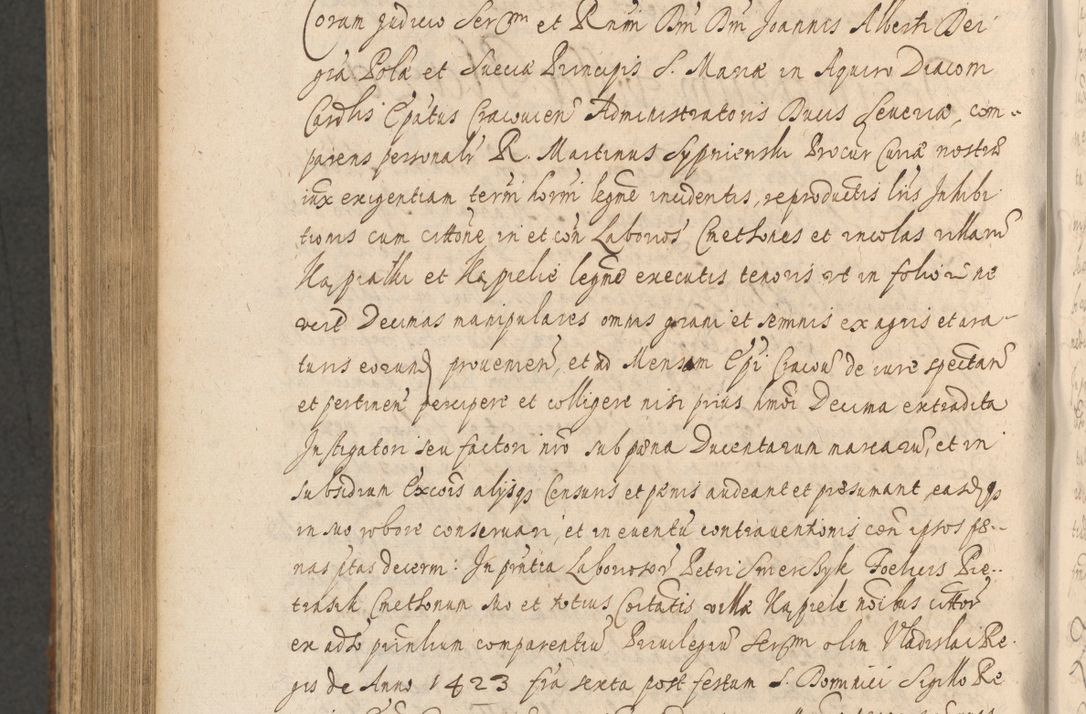 Coram judicio Serm et Rnmi Dni Dni Joannis Alberti Dei
gra Polæ et Sueciæ Principis S. Mariæ in Aquiro Diacom
Cardlis Epatus Cracouien Administratoris Ducis Seueriæ, com-
parens personalr R. Martinus Sypnienski Procur Curiæ nostræ
iux exigentiam termi horni legme incidentis, reproductis lris Inhibi
tionis cum cittone, in et con Laborios Cmethones et incolas villaru
et legme executis tenoris vt in folio ne
Decimas manipulares omnis grani et seminis ex agris et ara-
turis eorund prouenien, et ad Mensam Epi Cracou de iure spectan
et pertinen percipere et colligere nisi prius hmoi Decima extradita
Instigatori seu factori nro sub pæna Ducentarum marcaru, et in
subsidium Excois alijsqs Censuris et pænis audeant et præsumant, easdqs
in suo robore conseruari, et in euentu contrauentionis con ipsos pæ-
nas ptas decerni: In pntia Laboriosor Petri Foelicis Pie-
trasik Cmethonum suo et totius Coitatis villæ noibus cittor
ex adso pnnlium comparentiu Priuilegiu Serm olim Vladislai Re-
gis de Anno 1423 fra sexta post festum S. Dominici Sigillo Re